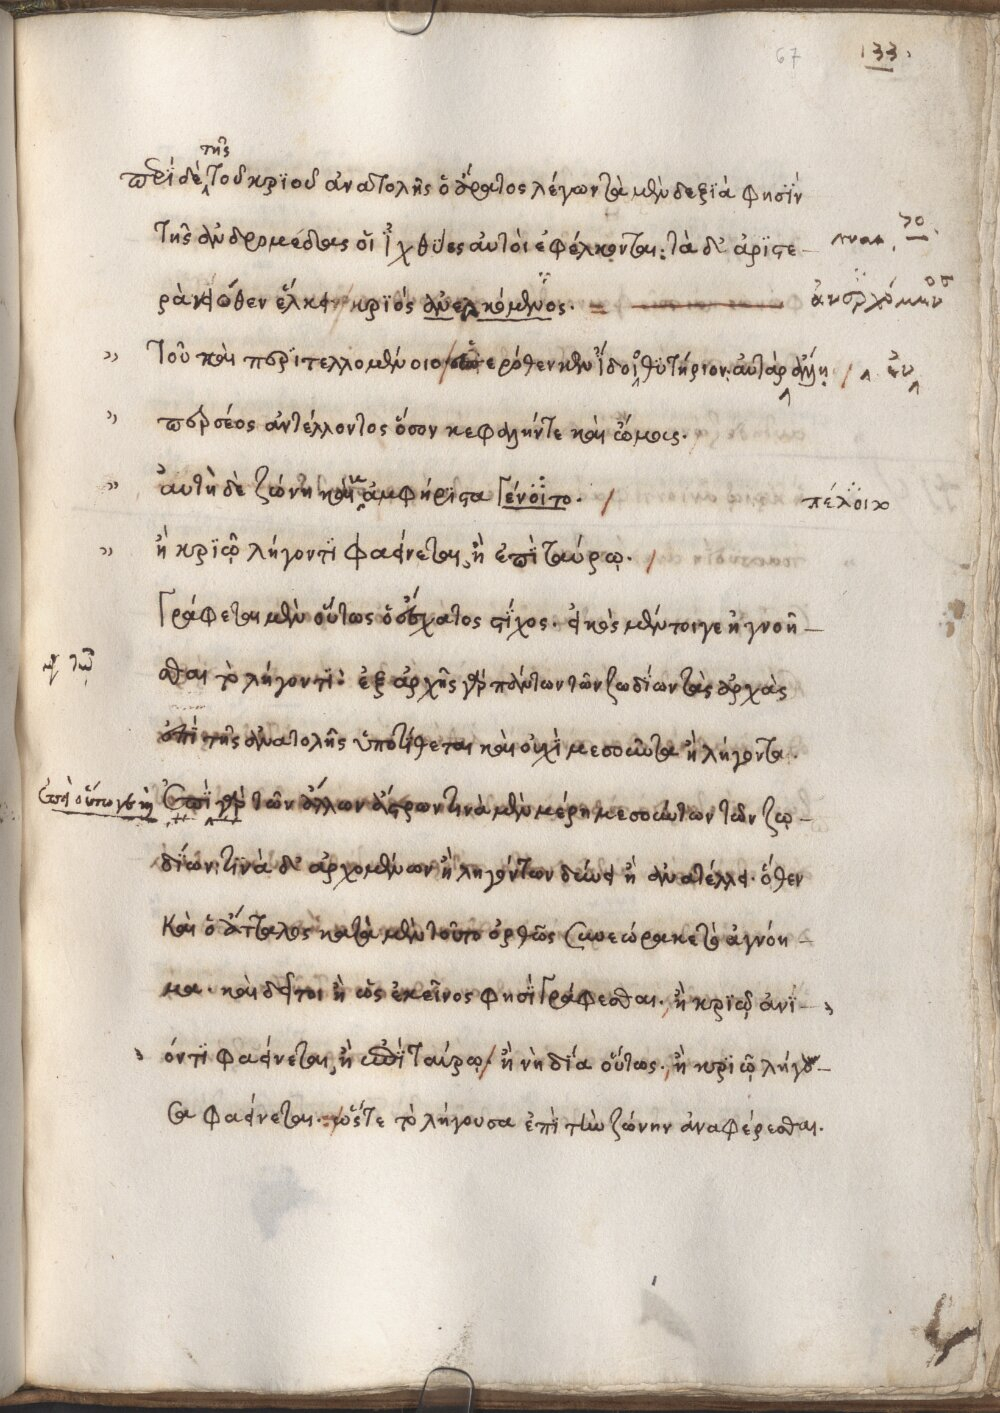 67 133.
τῆς
περὶ δὲ τοῦ κριοῦ ἀνατολῆς ὁ ἄρατος λέγων τὰ μὲν δεξιά φησὶν
τῆς ἀνδρομέδας οἱ ἰχθύες αὐτοὶ ἐφέλκονται· τὰ δ' ἀριστε-
ρὰ νειόθεν ἕλκει κριός ἀνελκόμενος.
ἀνερχόμενος
τοῦ καὶ περιτελλομένοιο ἑσπερόθεν κεν ἴδοιο θυτήριον. αὐτὰρ ἄλλη ἐν
περσέος ἀντέλλοντος ὅσον κεφαλήν τε καὶ ὤμους.
αὐτὴ δὲ ζώνη καί κε ἀμφήριστα γένοιτο.
πέλοιτο
ἢ κριῷ λήγοντι φαείνεται, ἢ ἐπὶ ταύρῳ.
Γράφεται μὲν οὕτως ὁ ἔσχατος στίχος. εἰκὸς μέντοιγε ἠγνοῆ-
σθαι τὸ λήγοντι· ἐξ ἀρχῆς γὰρ πάντων τῶν ζωδίων τὰς ἀρχὰς
ἐπὶ τῆς ἀνατολῆς ὑποτίθεται καὶ οὐχὶ μεσοῦντα ἢ λήγοντα.
Ἐπὶ γὰρ τῶν ἄλλων ἄστρων τινὰ μὲν μέρη μεσούντων τῶν ζῳ-
δίων, τινὰ δ' ἀρχομένων ἢ ληγόντων δύνει ἢ ἀνατέλλει. ὅθεν
καὶ ὁ ἄτταλος κατὰ μὲν τοῦτο ὀρθῶς συνεώρακε τὸ ἀγνόη-
μα. καὶ δεῖ τοι ἢ ὡς ἐκεῖνος φησὶ γράφεσθαι, ἢ κριῷ ἀνι-
όντι φαείνεται, ἢ ἐπὶ ταύρῳ ἢ νὴ δία οὕτως, ἢ κριῷ λήγου-
σα φαείνεται. ὥστε τὸ λήγουσα ἐπὶ τὴν ζώνην ἀναφέρεσθαι.